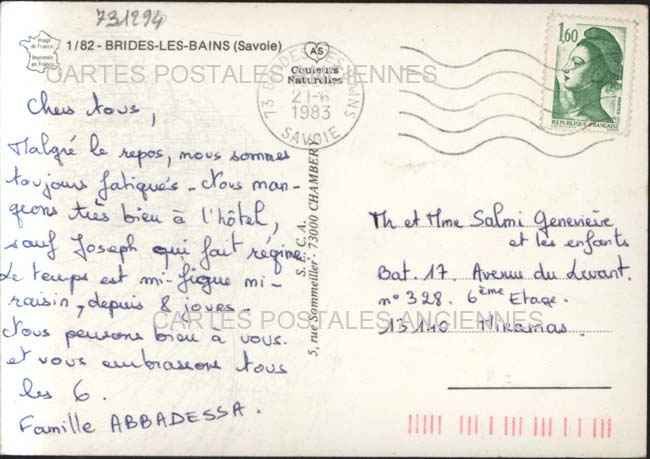 731294
Image de France
Imprimée en France
1/82 - BRIDES-LES-BAINS (Savoie)
AS
Couleurs
Naturelles
73 BRIDES LES BAINS
21-6
1983
SAVOIE
1,60
POSTES
REPUBLIQUE FRANÇAISE
CARTES POSTALES ANCIENNES
Chers tous,
Malgré le repos, nous sommes
toujours fatigués - Nous man-
geons très bien à l'hôtel,
sauf Joseph qui fait régime
Le temps est mi-figue mi-
raisin, depuis 8 jours -
Nous pensons bien à vous.
et vous embrassons tous
les 6.
Famille ABBADESSA.
S. E. C. A.
5, rue Sommeiller - 73000 CHAMBERY
Mr et Mme Salmi Geneviève
et les enfants
Bat. 17. Avenue du Levant.
n° 328. 6ème Etage.
13140 Miramas.
CARTES POSTALES ANCIENNES